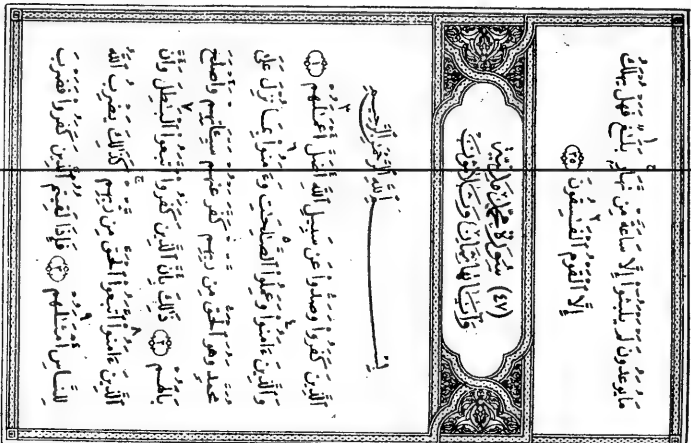 مَا يُوعَدُونَ لَمْ يَلْبَثُوٓا۟ إِلَّا سَاعَةً مِّن نَّهَارِۭ بَلَـٰغٌ فَهَلْ يُهْلَكُ
إِلَّا ٱلْقَوْمُ ٱلْفَـٰسِقُونَ ﴿٣٥﴾
(٤٧) سُورَةُ مُحَمَّدٍ مَدَنِيَّة
وَآيَاتُهَا ثَمَانٍ وَثَلَاثُونَ
بِسْمِ ٱللَّهِ ٱلرَّحْمَـٰنِ ٱلرَّحِيمِ
ٱلَّذِينَ كَفَرُوا۟ وَصَدُّوا۟ عَن سَبِيلِ ٱللَّهِ أَضَلَّ أَعْمَـٰلَهُمْ ﴿١﴾
وَٱلَّذِينَ ءَامَنُوا۟ وَعَمِلُوا۟ ٱلصَّـٰلِحَـٰتِ وَءَامَنُوا۟ بِمَا نُزِّلَ عَلَىٰ
مُحَمَّدٍ وَهُوَ ٱلْحَقُّ مِن رَّبِّهِمْ كَفَّرَ عَنْهُمْ سَيِّـَٔاتِهِمْ وَأَصْلَحَ
بَالَهُمْ ﴿٢﴾ ذَٰلِكَ بِأَنَّ ٱلَّذِينَ كَفَرُوا۟ ٱتَّبَعُوا۟ ٱلْبَـٰطِلَ وَأَنَّ
ٱلَّذِينَ ءَامَنُوا۟ ٱتَّبَعُوا۟ ٱلْحَقَّ مِن رَّبِّهِمْ كَذَٰلِكَ يَضْرِبُ ٱللَّهُ
لِلنَّاسِ أَمْثَـٰلَهُمْ ﴿٣﴾ فَإِذَا لَقِيتُمُ ٱلَّذِينَ كَفَرُوا۟ فَضَرْبَ